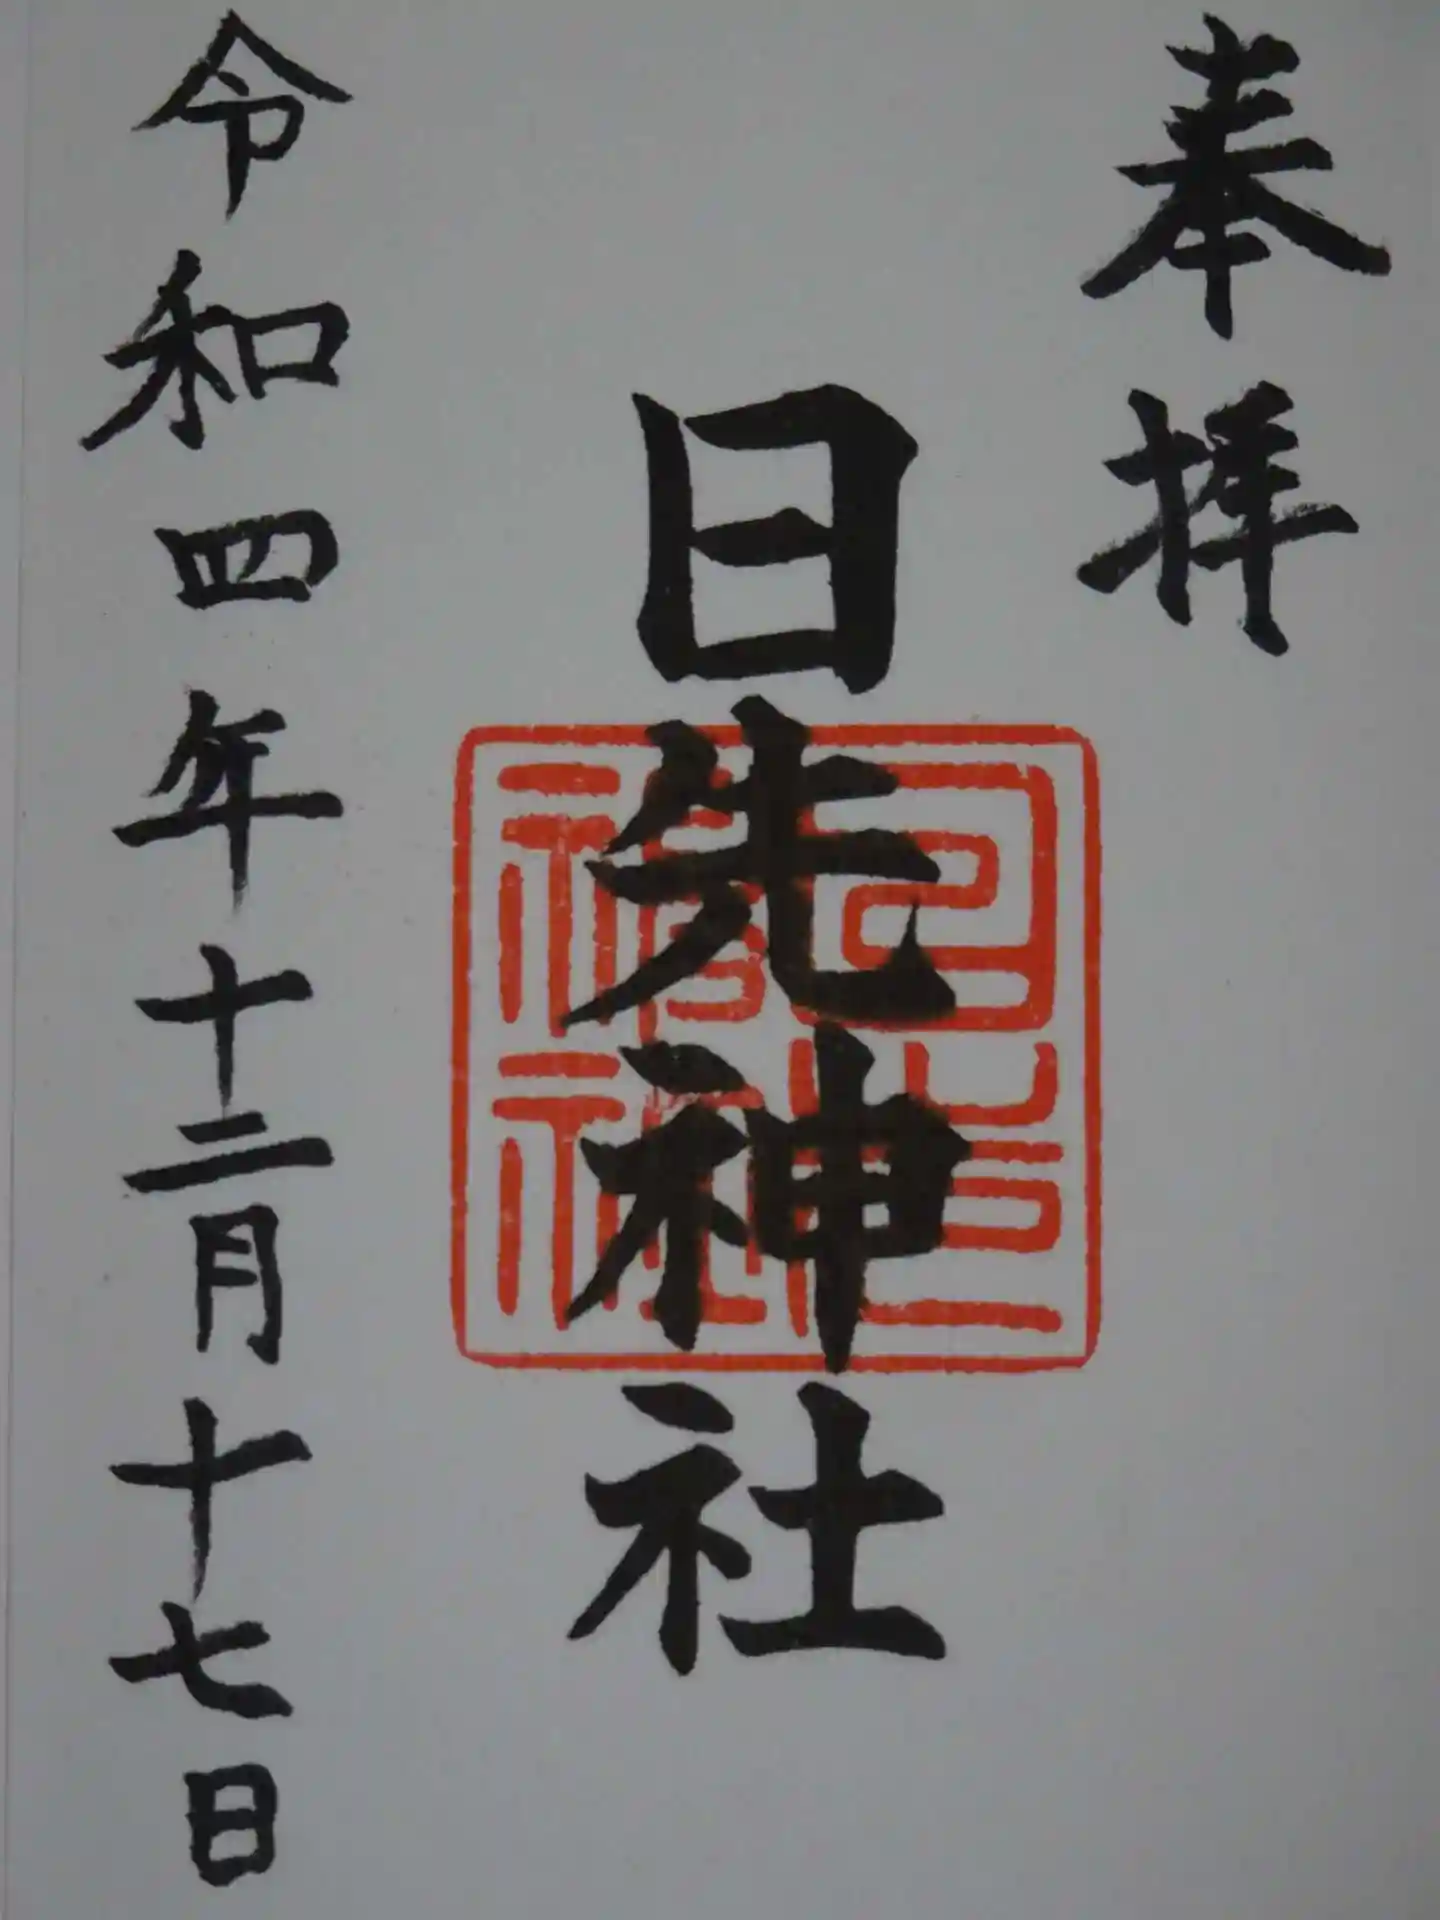 奉拝
日先神社
令和四年十二月十七日